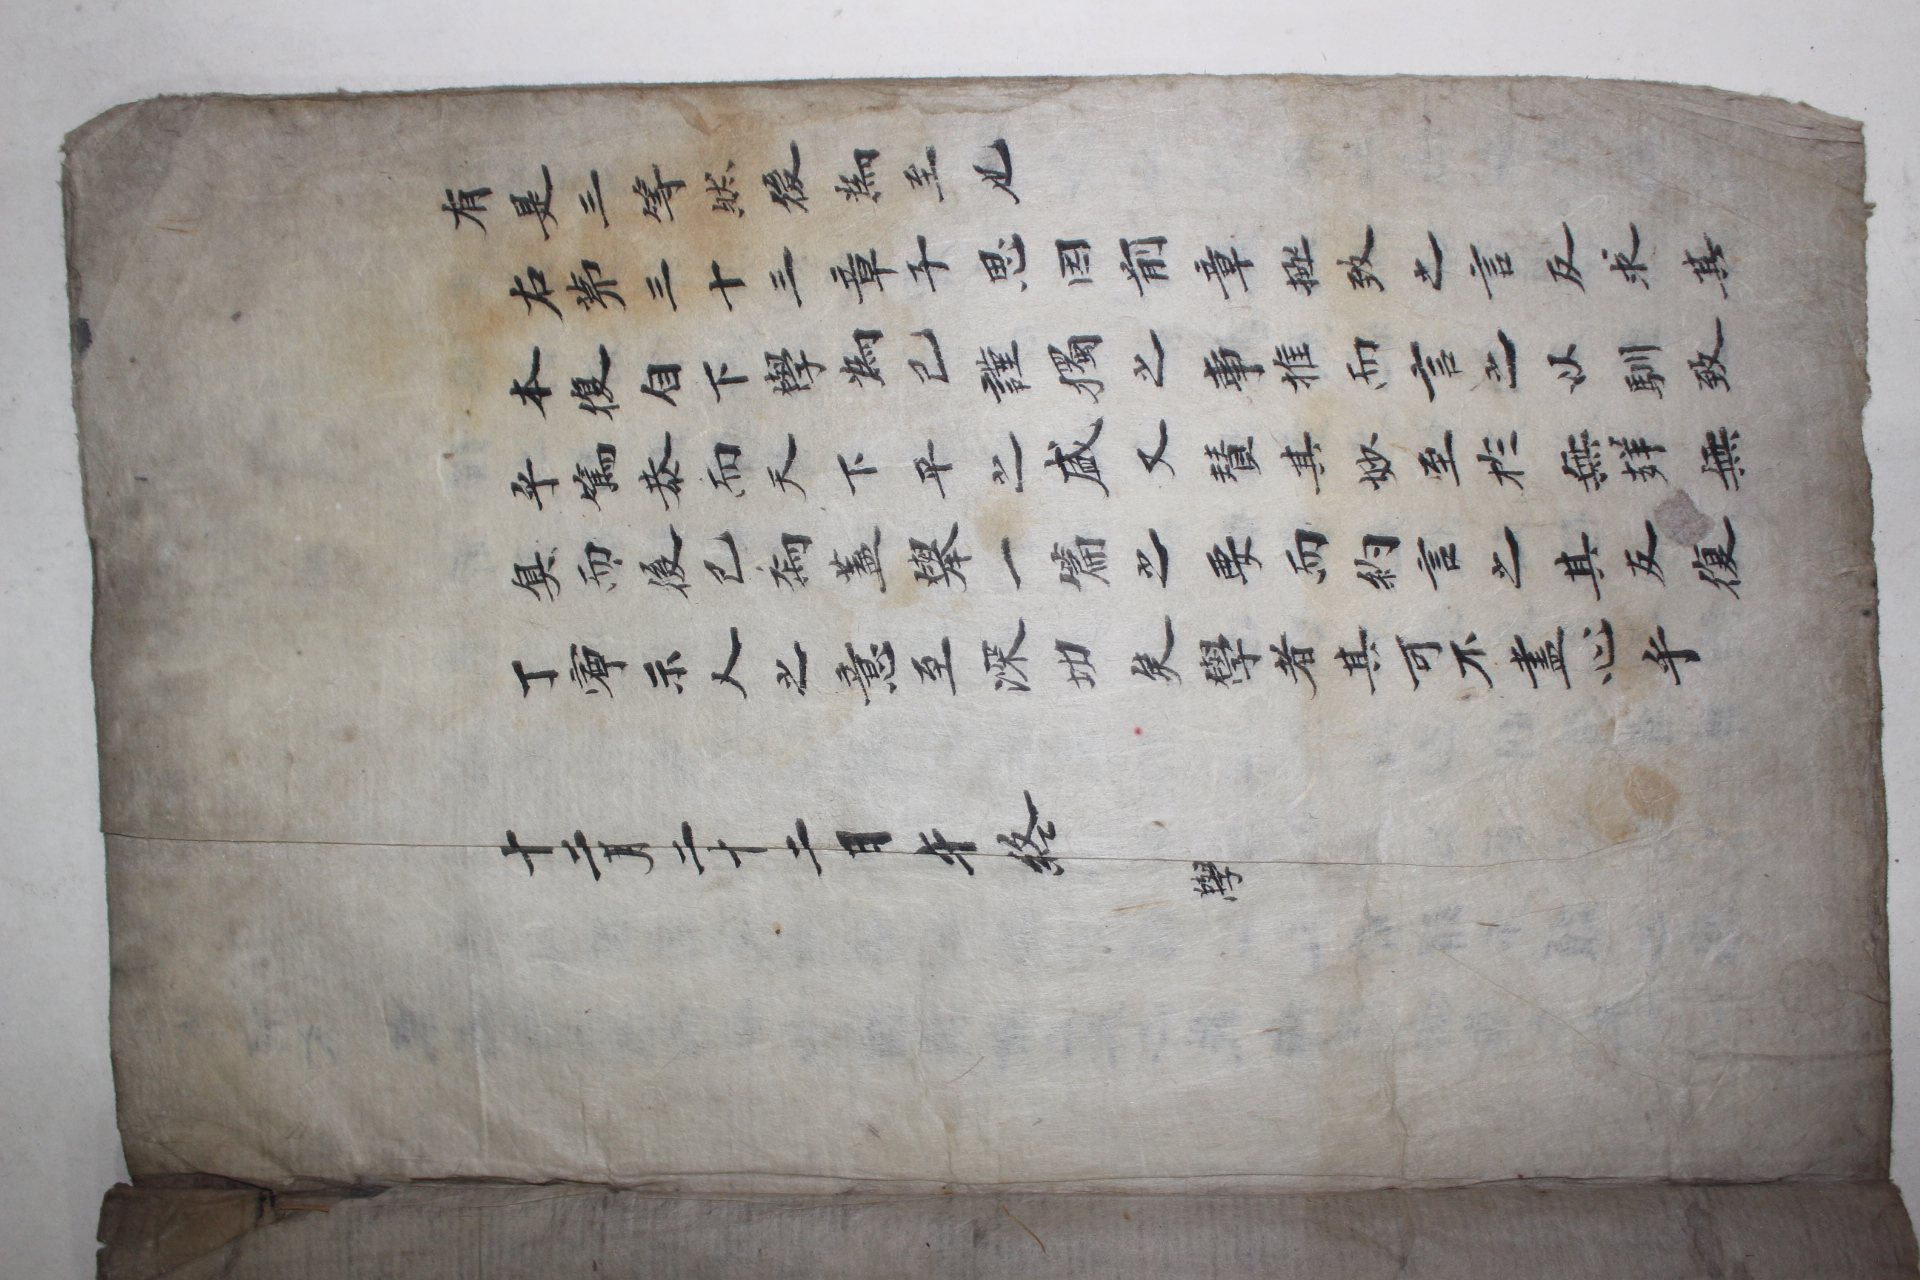 有是三等然後為至也
右苐三十三章子思因前章極致之言反求其
本復自下學為己謹獨之事推而言之以馴致
乎篤恭而天下平之盛又賛其妙至於無聲無
臭而後已焉蓋擧一篇之要而約言之其反復
丁寧示人之意至深切矣學者其可不盡心乎
十二月二十二日午終
學